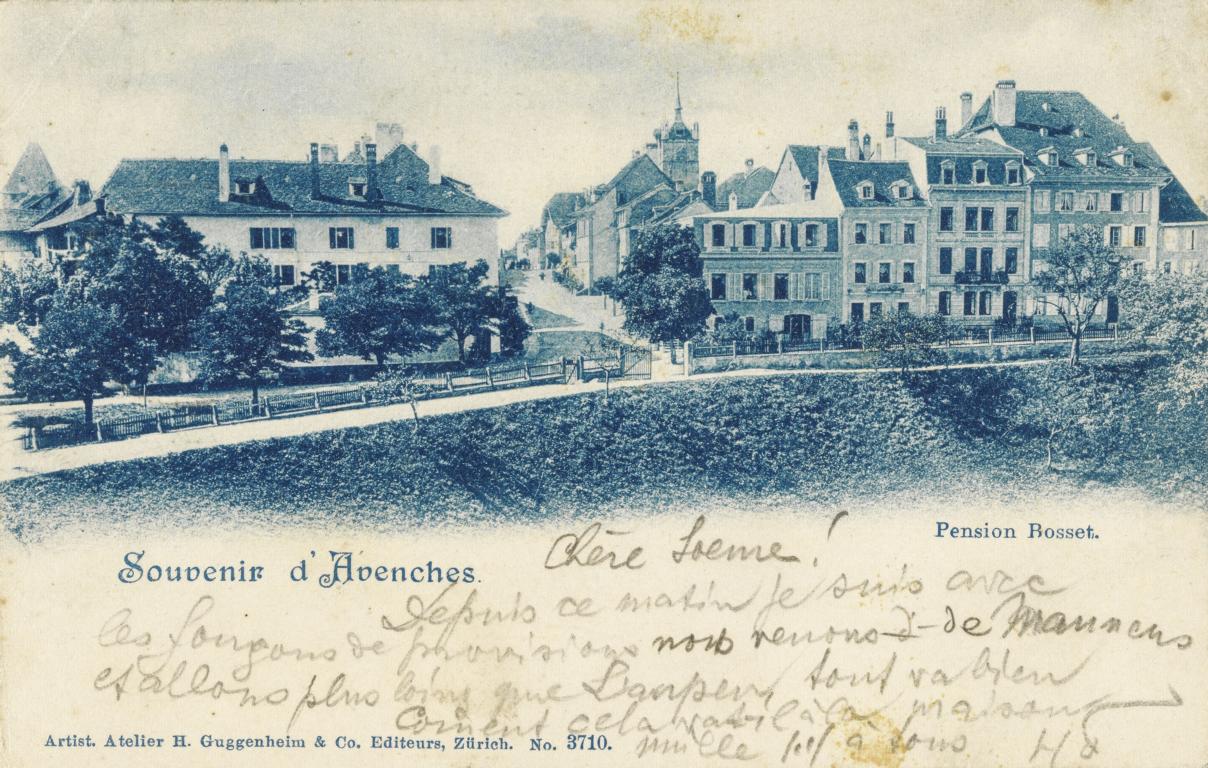 Souvenir d'Avenches.
Pension Bosset.
Chère Soeur!
Depuis ce matin je suis avec
les fourgons de provisions nous venons de Mannens
et allons plus loins que Laupen, tout va bien
Coment cela va til à la maison
mille à tous
Artist. Atelier H. Guggenheim & Co. Editeurs, Zürich. No. 3710.